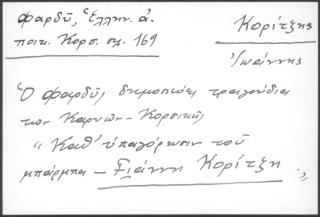 Φαρδύ, Ἑλλην. ἀ.
ποικ. Κορσ. σελ. 169
Κορίτζης
Ἰωάννης
Ὁ Φαρδύς δημοσιεύει τραγούδια
των Καρυών - Κορσικῆς
"Καθ' ὑπαγόρευσιν τοῦ
μπάρμπα - Γιάννη Κορίτζη."